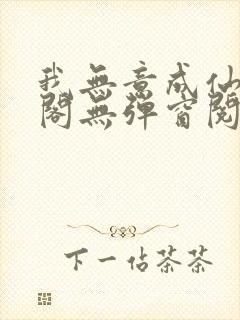 我無意成仙
閣無彈窗閱
下一佔茶茶